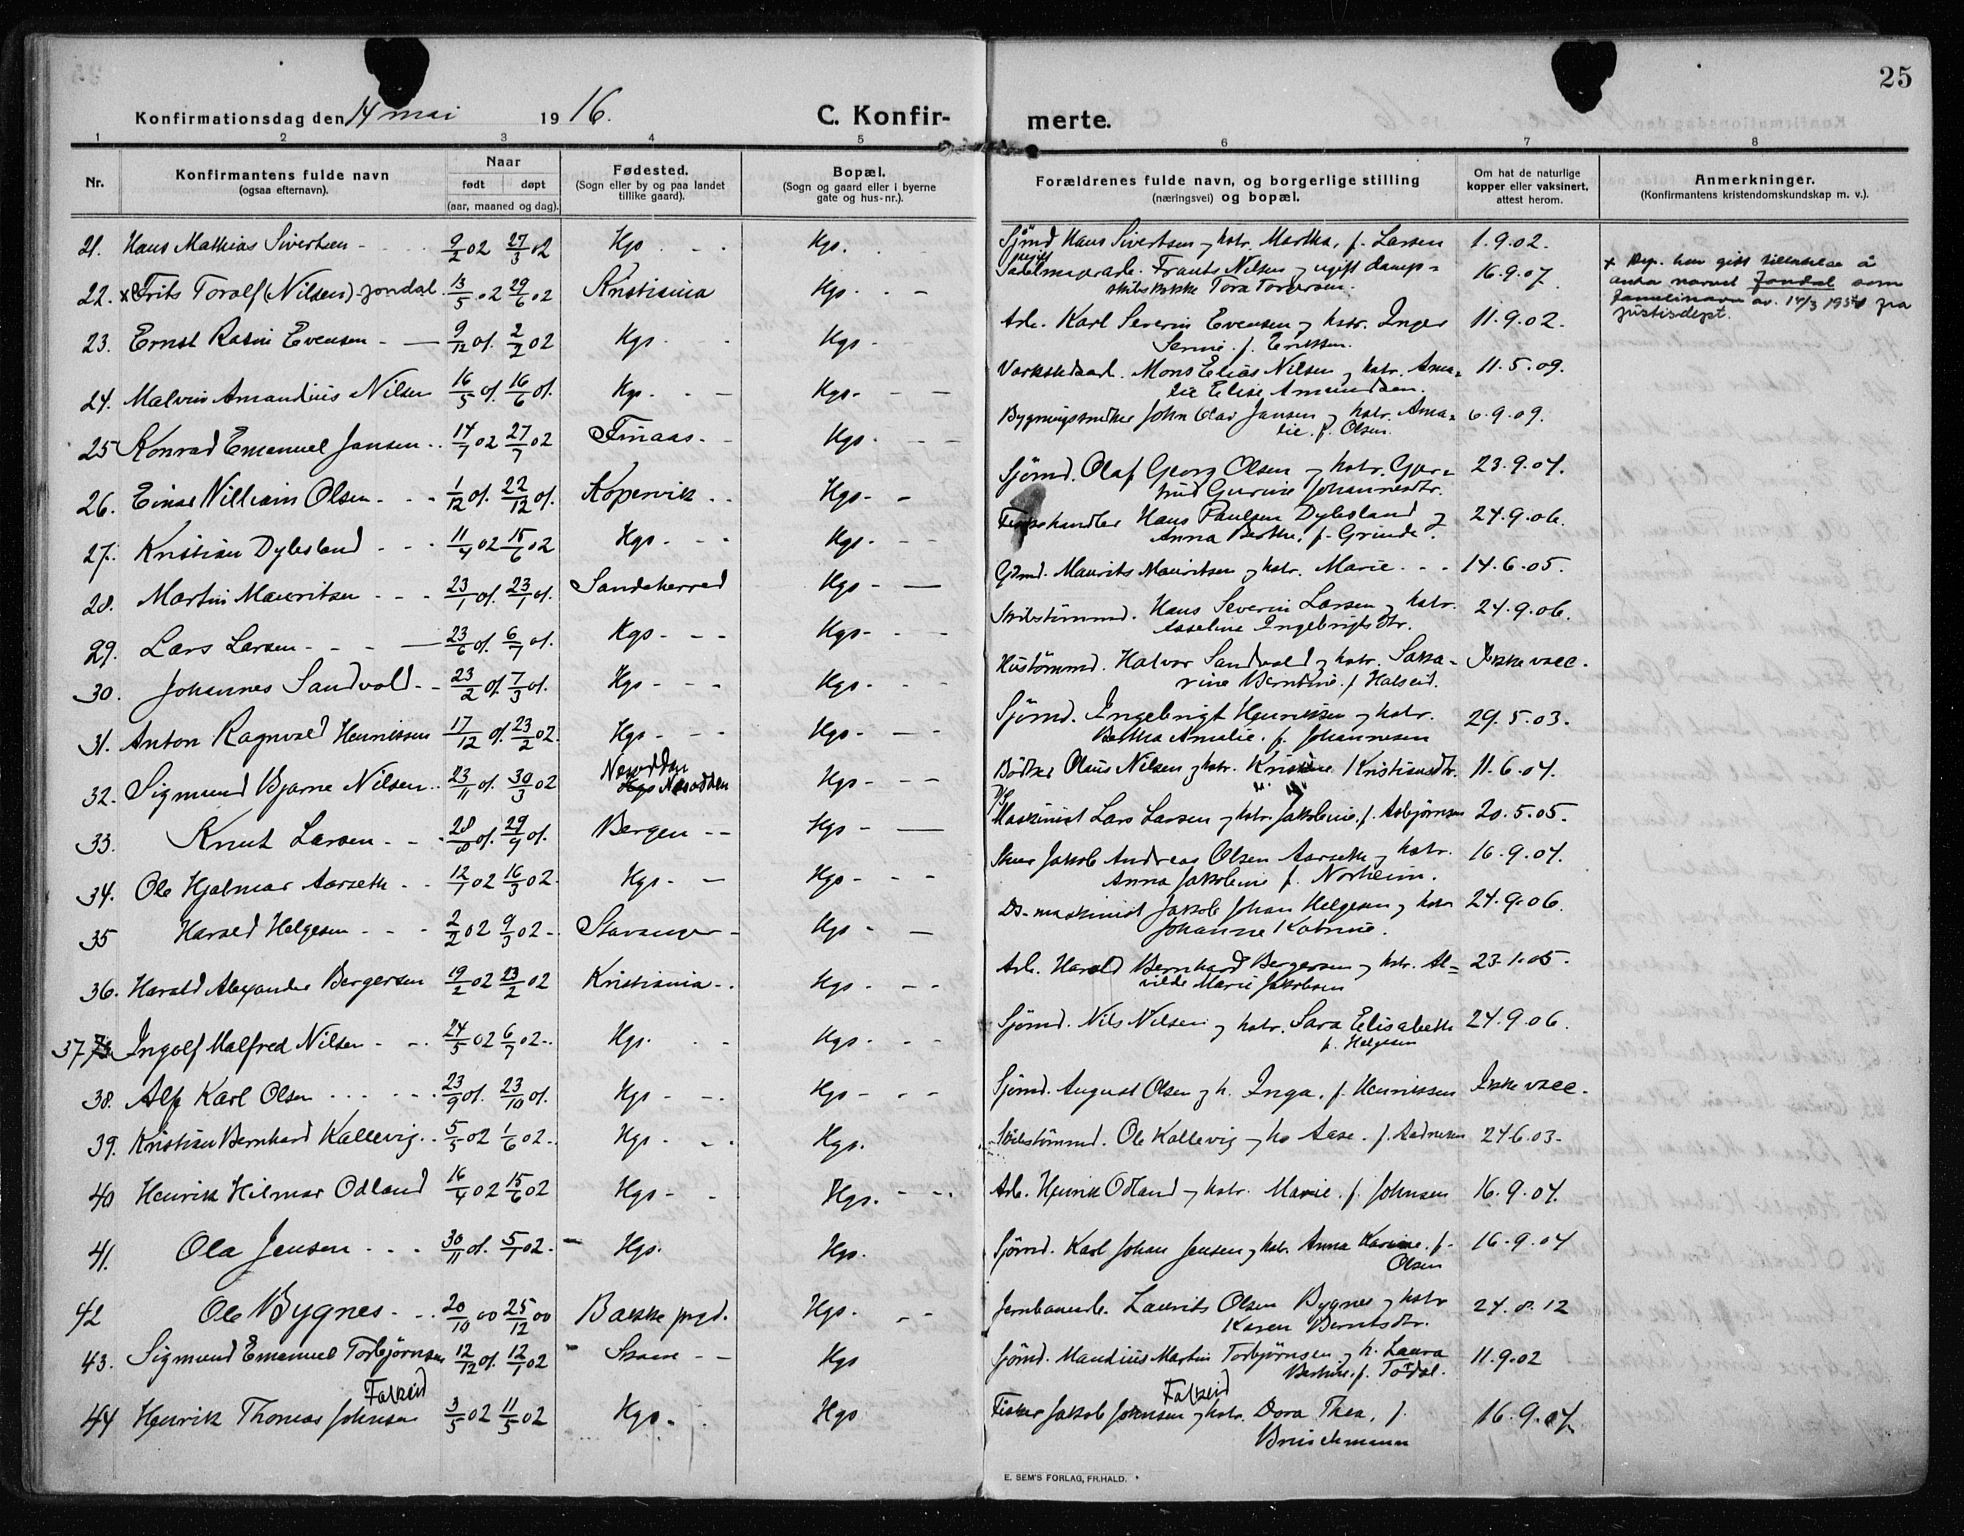 25
Konfirmationsdag den 14 mai 1916. C. Konfirmerte.
1 2 3 4 5 6 7 8
Nr. Konfirmantens fulde navn (ogsaa efternavn). Naar født døpt (aar, maaned og dag). Fødested. (Sogn eller by og paa landet tillike gaard). Bopæl. (Sogn og gaard eller i byerne gate og hus-nr.). Forældrenes fulde navn, og borgerlige stilling (næringsvei) og bopæl. Om hat de naturlige kopper eller vaksinert, attest herom. Anmerkninger. (Konfirmantens kristendomskundskap m. v.).
21. Hans Mathias Sivertsen - 9/2 02 27/3 02 Hgs. Hgs. Sjømd Hans Sivertsen og hstr. Martha, f. Larsen 1.9.02.
22. x Frits Toralf (Nilsen) Jondal 13/5 02 29/6 02 Kristiania Hgs. ugift Sadelmagerarb. Frants Nilsen og ugift damp=
skibskokke Tora Torgersen. 16.9.07 x Dep. har gitt tillatelse å
anta navnet Jondal som
familienavn av. 14/3 1934 fra
justisdept.
23. Ernst Rasin Evensen - 9/12 01. 2/2 02 Hgs. Hgs. Arb. Karl Severin Evensen og hstr. Inger
Serine f. Eriksen. 11.9.02.
24. Malvin Amandius Nilsen 16/5 01. 16/6 01. Hgs. Hgs. Mons Elias Nilsen og hstr. Ama=
lie Elise Amundsen. 11.5.09.
25 Konrad Emanuel Jansen 14/7 02 27/7 02 Finaas. Hgs. John Olai Jansen og hstr. Ama=
lie f. Olsen. 6.9.09.
26. Einar William Olsen 1/12 01. 22/12 01. Kopervik Hgs. Sjømd. Olaf Georg Olsen og hstr. Gjer=
trud Gurine Johannesdtr. 23.9.07.
27. Kristian Dybsland 11/4 02 15/6 02 Hgs. Hgs. Fiskehandler Hans Paulsen Dybsland og
Anna Berthe, f. Grinde. 24.9.06.
28. Martin Mauritsen 23/1 01. 23/1 01. Sandeherred Hgs. Gjømd. Maurits Mauritsen og hstr. Marie 14.6.05.
29. Lars Larsen 23/6 01. 6/7 01. Hgs. Hgs. Skibstømmd. Hans Severin Larsen og hstr.
Asseline Engebrigtsdtr. 24.9.06.
30. Johannes Sandvold 23/2 01. 7/3 01. Hgs. Hgs. Hustømmd. Halvor Sandvold og hstr. Saka=
rine Berntine f. Halseid. Ikke vacc.
31. Anton Ragnvald Henriksen 17/12 01. 23/2 02. Hgs. Hgs. Sjømd. Ingebrigt Henriksen og hstr.
Bertha Amalie. f. Johannesen 29.5.03.
32. Sigmund Bjarne Nilsen 23/11 01. 30/3 02 Nesodden
Hgs Nesodden Hgs. Bødker Olaus Nilsen og hstr. Kristine Kristiansdtr. 11.6.04.
33. Knut Larsen 28/8 01. 29/9 01. Bergen Hgs. D/S
Maskinist Lars Larsen og hstr. Jakobine, f. Asbjørnsen 20.5.05.
34. Ole Hjalmar Aarseth 12/1 02 16/3 02. Hgs. Hgs. Jakob Andreas Olsen Aarseth og hstr.
Anna Jakobine f. Norheim. 16.9.07.
35 Harald Helgesen 2/2 02 9/3 02 Stavanger Hgs. Ds-maskinist Jakob Johan Helgesen og hstr
Johanne Katrine. 24.9.06.
36. Harald Alexander Bergersen 19/2 02 23/2 02 Kristiania Hgs. Arb. Harald Bernhard Bergersen og hstr. Al=
vilde Marie Jakobsen 23.1.05.
37 Ingolf Malfred Nilsen 24/5 02 6/7 02. Hgs. Hgs. Sjømd. Nils Nilsen og hstr. Sara Elisabeth
f. Helgesen 24.9.06.
38. Alf Karl Olsen 23/9 01. 23/10 01. Hgs. Hgs Sjømd. August Olsen og h. Inga, f. Henriksen Ikke vacc.
39. Kristian Bernhard Kallevig 5/5 02 1/6 02. Hgs. Hgs. Skibstømmd. Ole Kallevig og hs Aase. f. Aadnesen 24.6.03.
40 Henrik Hilmar Odland 16/4 02 15/6 02 Hgs. Hgs. Arb. Henrik Odland og hstr. Marie. f. Johnsen 16.9.07.
41. Ola Jensen 30/11 01. 5/1 02. Hgs. Hgs. Sjømd. Karl Johan Jensen og hstr. Anna Karine. f.
Olsen 16.9.07
42 Ole Bygnes 20/10 00 25/12 00 Bakke prgd. Hgs. Jernbanearb. Laurits Olsen Bygnes og hstr
Karen Berntsdtr. 24.8.12
43. Sigmund Emanuel Torbjørnsen 12/12 01. 12/1 02 Skaare Hgs Sjømd. Mandius Martin Torbjørnsen og h. Laura
Bertine. f. Tordal. 11.9.02
44 Henrik Thomas Johnsen Falkeid 3/5 02 11/5 02 Hgs. Hgs Fisker Jakob Johnsen Falkeid og hstr. Dora Thea, f.
Brüschmann 16.9.07.
E. SEM'S FORLAG, FR.HALD.